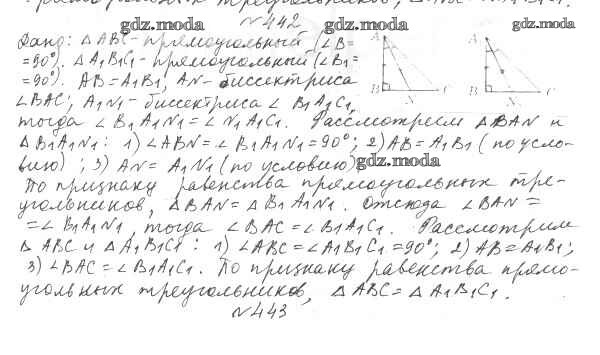 gdz.moda
gdz.moda
gdz.moda
№442
Дано: △ABC - прямоугольный (∠B=
=90°). △A₁B₁C₁ - прямоугольный (∠B₁=
=90°). AB=A₁B₁, AN - биссектриса
∠BAC; A₁N₁ - биссектриса ∠B₁A₁C₁,
тогда ∠B₁A₁N₁ = ∠N₁A₁C₁. Рассмотрим △BAN и
△B₁A₁N₁: 1) ∠ABN = ∠B₁A₁N₁ = 90°; 2) AB = A₁B₁ (по усло-
вию); 3) AN = A₁N₁ (по условию)
gdz.moda
По признаку равенства прямоугольных тре-
угольников, △BAN = △B₁A₁N₁. Отсюда ∠BAN =
= ∠B₁A₁N₁, тогда ∠BAC = ∠B₁A₁C₁. Рассмотрим
△ABC и △A₁B₁C₁: 1) ∠ABC = ∠A₁B₁C₁ = 90°; 2) AB = A₁B₁;
3) ∠BAC = ∠B₁A₁C₁. По признаку равенства прямо-
угольных треугольников, △ABC = △A₁B₁C₁.
№443
A
B
N
C
A
B
N
C